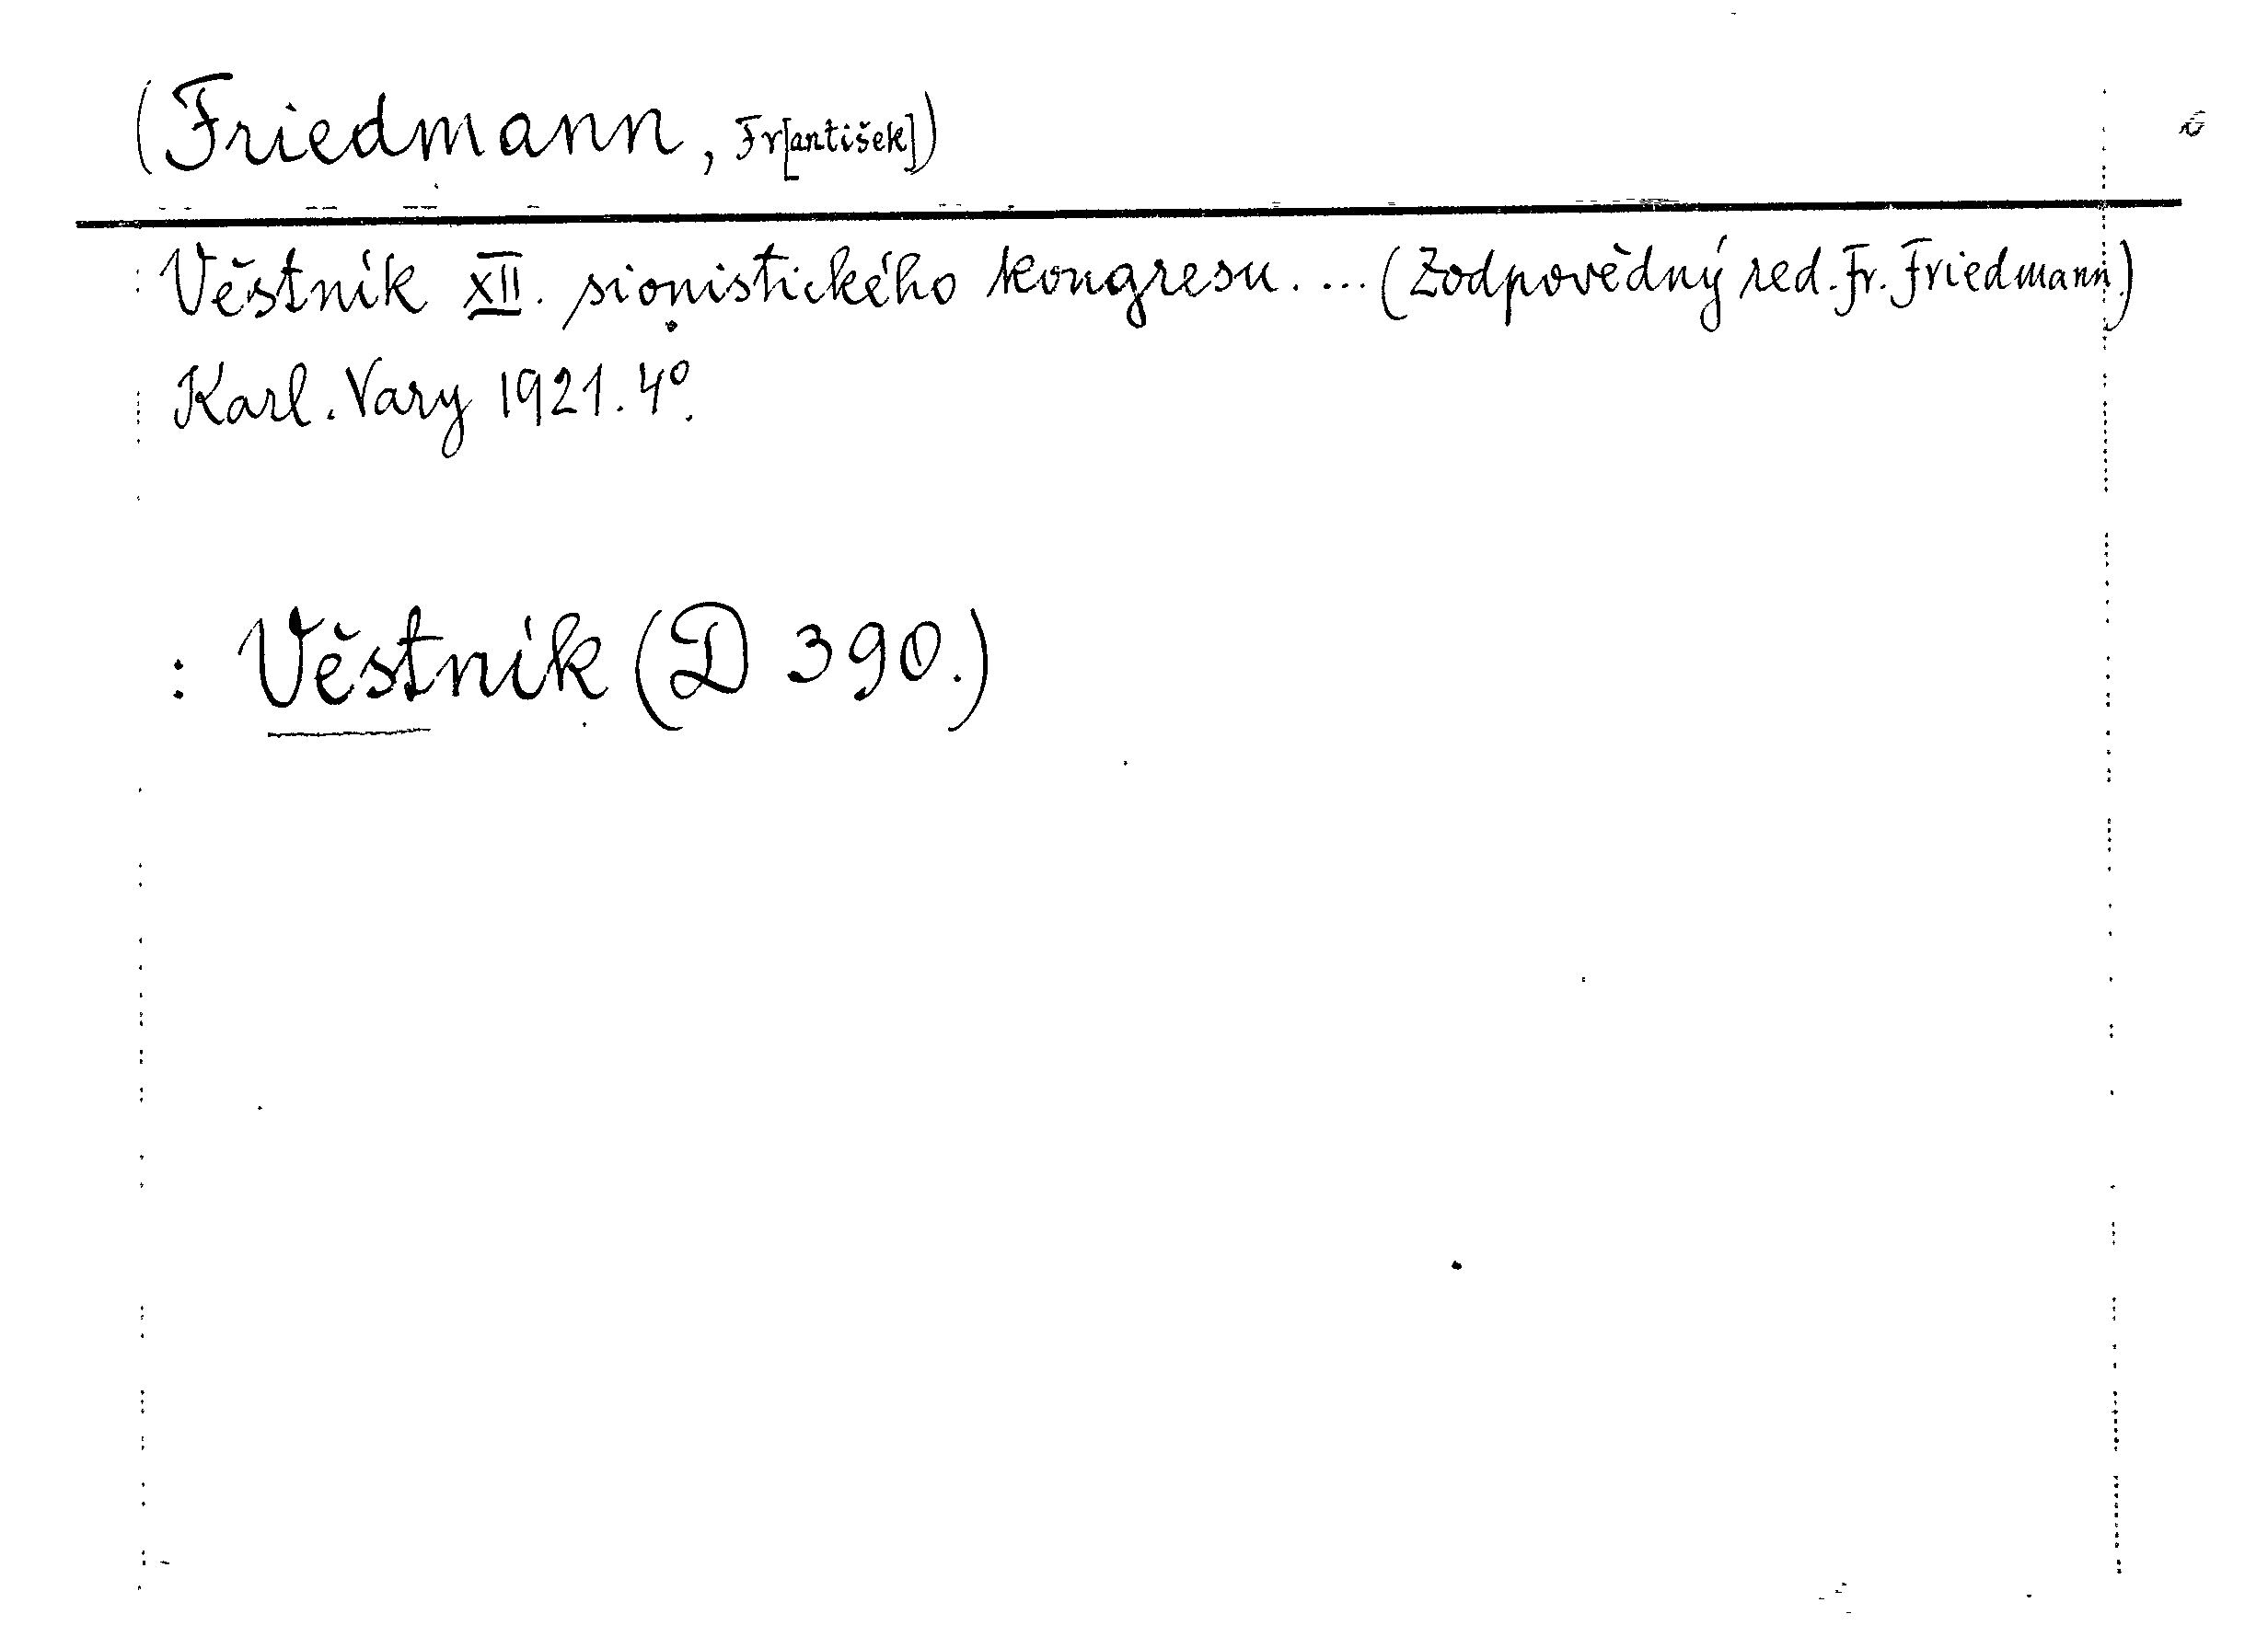 (Friedmann, Fr[antišek])
Věstník XII. sionistického kongresu. ... (Zodpovědný red. Fr. Friedmann.)
Karl. Vary 1921. 4°.
: Věstník (D 390.)